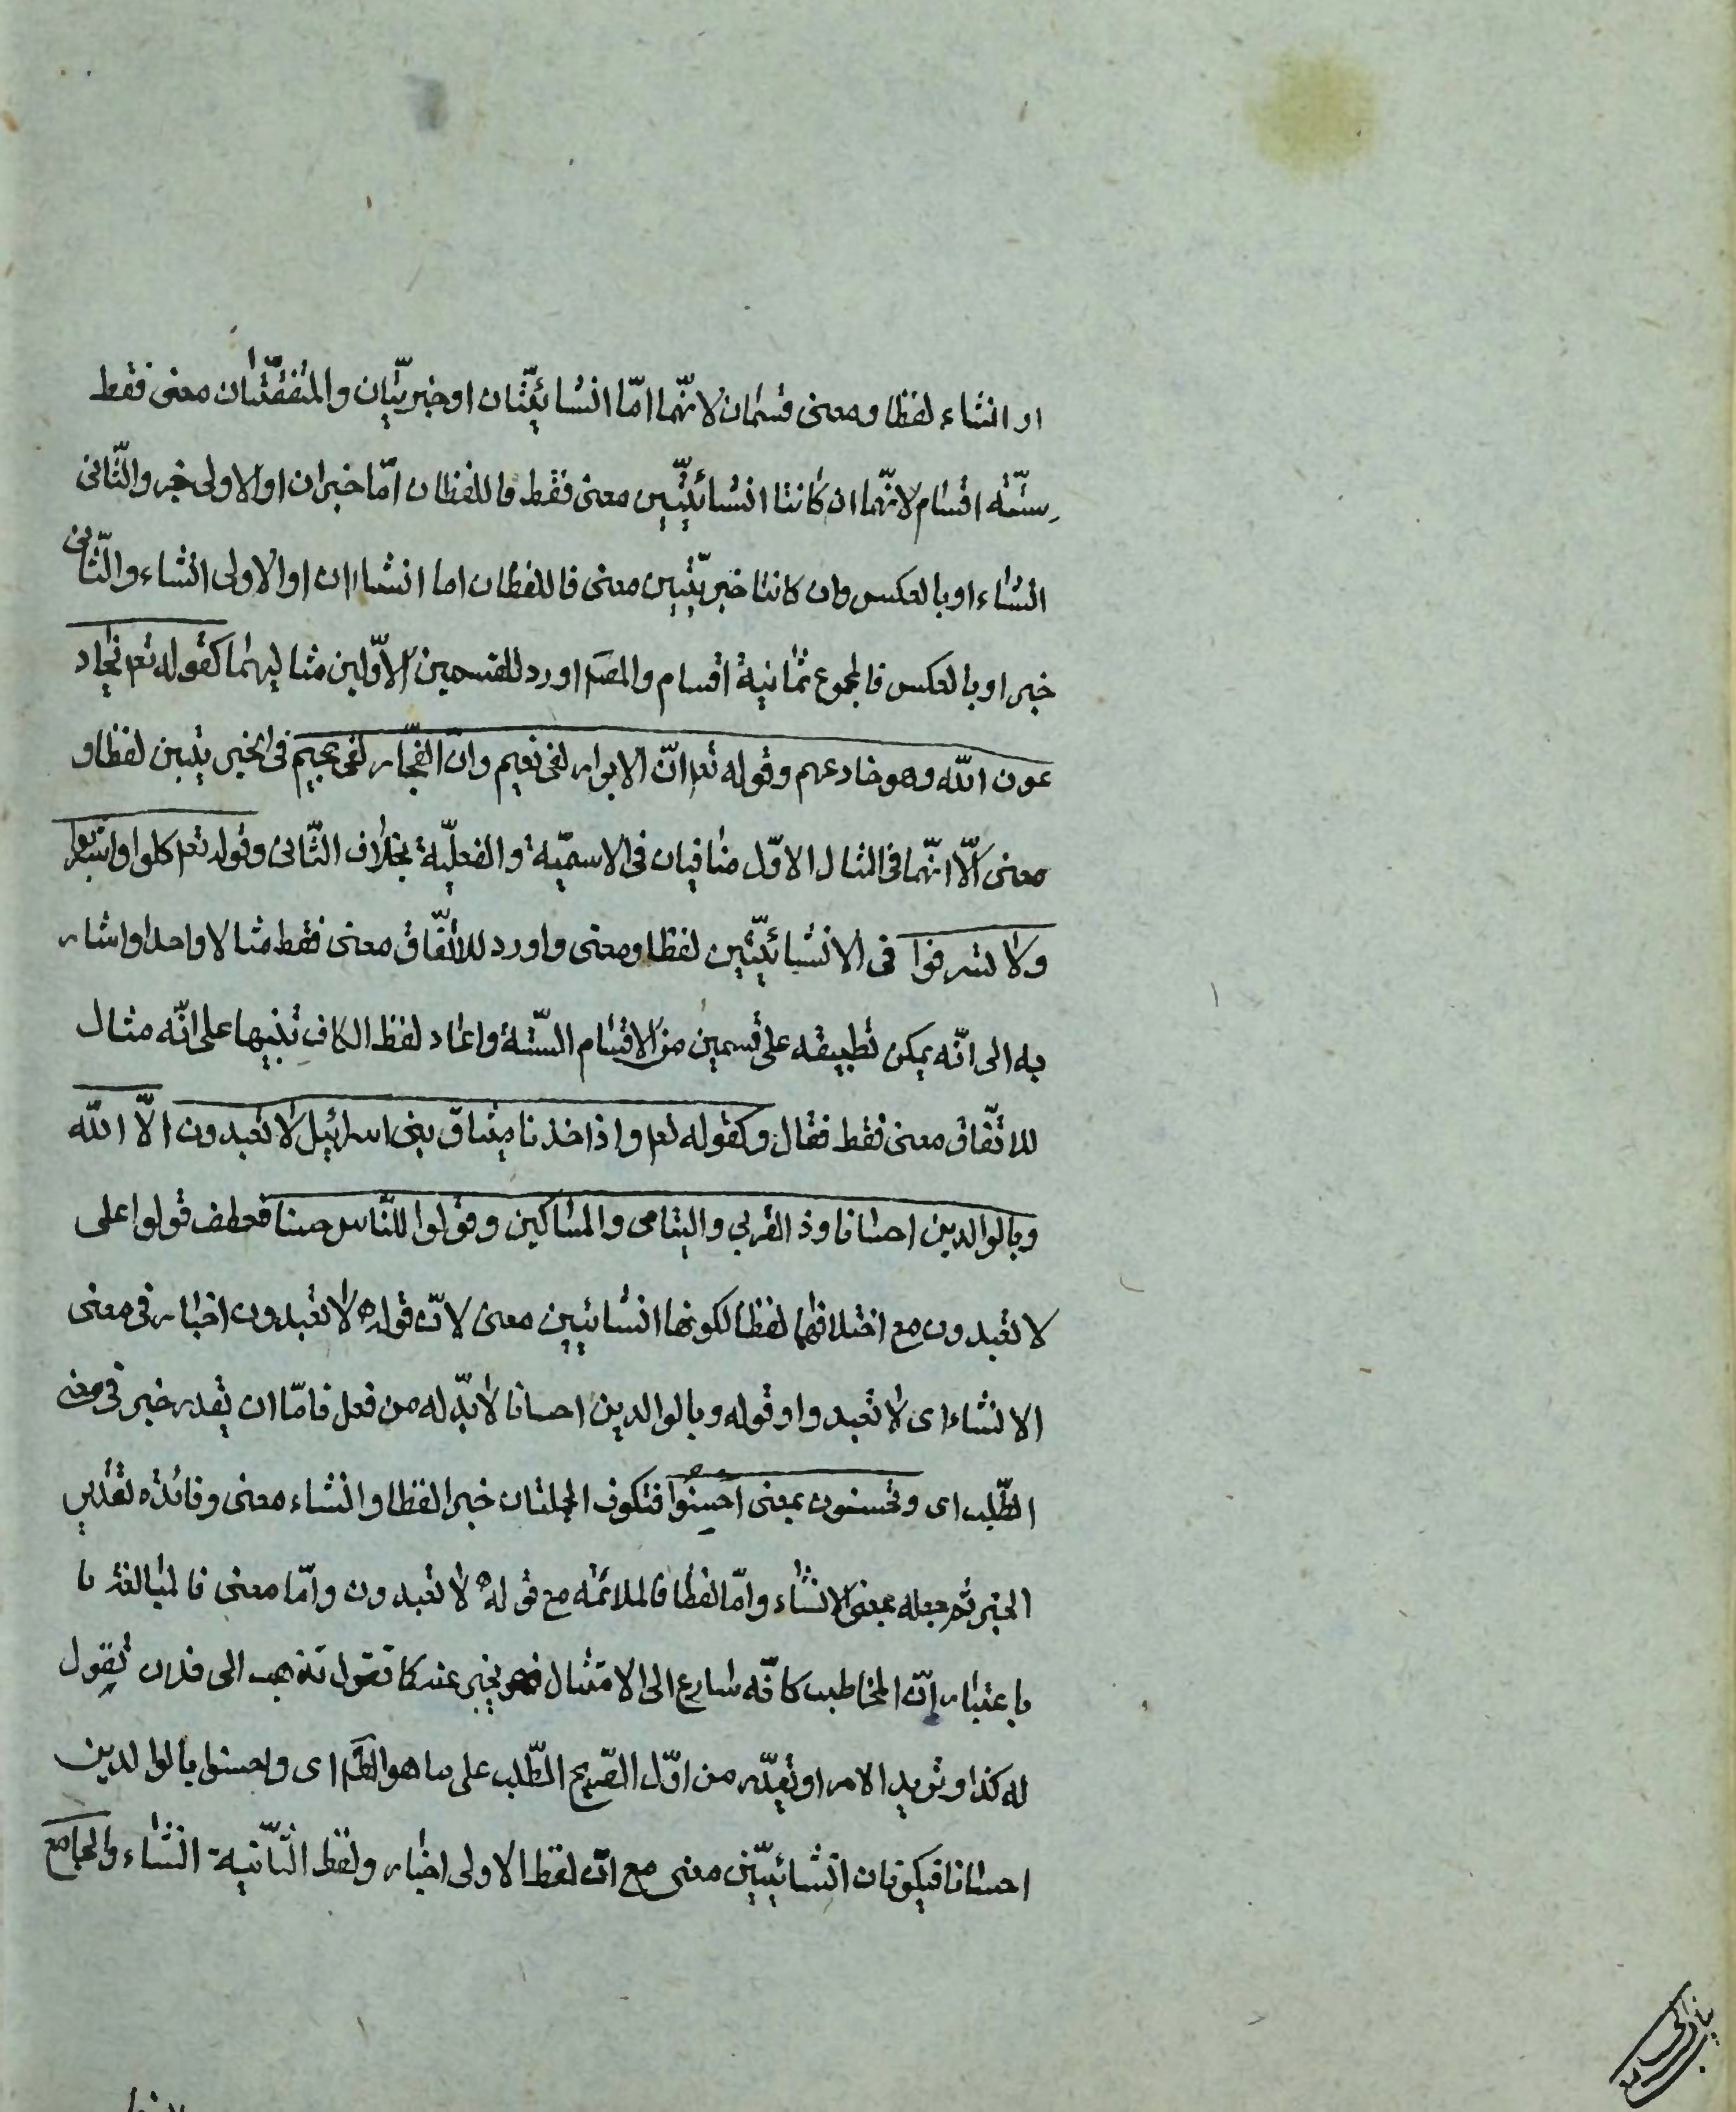 او انشاء لفظا ومعنى قسمان لانّهما امّا انشائيّتان او خبريّتان والمتّفقتان معنى فقط
ستّة اقسام لانّهما ان كانتا انشائيّتين معنى فقط فاللفظان امّا خبران او الاولى خبر والثّانى
انشاء او بالعكس وان كانتا خبريّتين معنى فاللفظان اما انشاءان او الاولى انشاء والثّانى
خبر او بالعكس فالمجموع ثمانية اقسام والمص اورد للقسمين الاوّلين مثاليهما كقوله تع يخاد
عون الله وهو خادعهم وقوله تع انّ الابرار لفى نعيم وانّ الفجّار لفى جحيم فى الخبريتين لفظا و
معنى الّا انّهما فى المثال الاوّل متنافيان فى الاسميّة والفعليّة بخلاف الثّانى وقوله تع كلوا واشربوا
ولا تسرفوا فى الانشائيّتين لفظا ومعنى واورد للاتّفاق معنى فقط مثالا واحدا واشار
به الى انّه يمكن تطبيقه على قسمين من الاقسام السّتة واعاد لفظ الكاف تنبيها على انّه مثال
للاتّفاق معنى فقط فقال وكقوله تع واذ اخذنا ميثاق بنى اسرائيل لا تعبدون الّا الله
وبالوالدين احسانا وذى القربى واليتامى والمساكين وقولوا للنّاس حسنا فعطف قولوا على
لا تعبدون مع اختلافهما لفظا لكونهما انشائيين معنى لانّ قوله لا تعبدون اخبار فى معنى
الانشاء اى لا تعبدوا وقوله وبالوالدين احسانا لا بدّ له من فعل فامّا ان يقدر خبر فى معنى
الطّلب اى وتحسنون بمعنى احسنوا فتكون الجملتان خبرا لفظا وانشاء معنى وفائدة تقدير
الخبر ثم جعله بمعنى الانشاء وامّا لفظا فالملائمة مع قوله لا تعبدون وامّا معنى فالمبالغة با
باعتبار انّ المخاطب كانّه سارع الى الامتثال فهو يخبر عنه كما تقول تذهب الى فلان تقول
له كذا وتريد الامر او يقدّر من اوّل الصّريح الطّلب على ما هو الظ اى واحسنوا بالوالدين
احسانا فيكونان انشائيّين معنى مع انّ لفظ الاولى اخبار ولفظ الثّانية انشاء والجامع